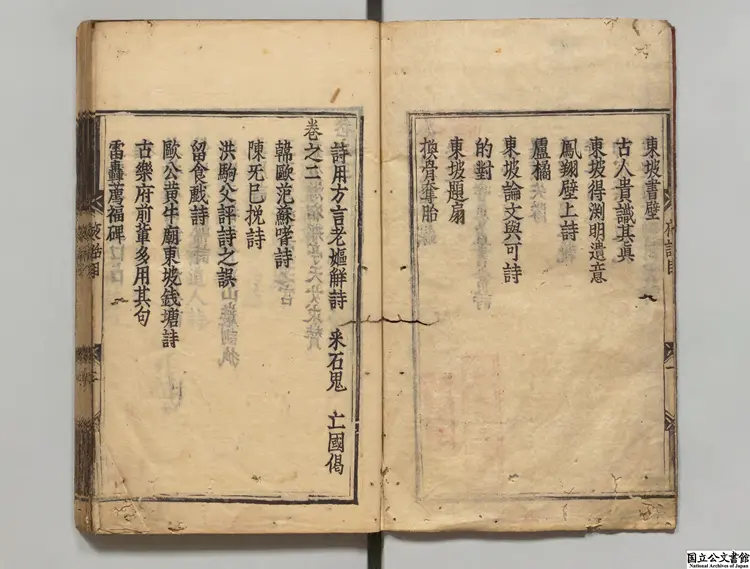 東坡書壁
古人貴識其真
東坡得淵明遺意
鳳翔壁上詩
盧橘
東坡論文與可詩
的對
東坡題扇
換骨奪胎
詩用方言老嫗解詩 采石鬼 亡國偈
卷之二
韓歐范蘇嗜詩
陳無己挽詩
洪駒父評詩之誤
留食戲詩
歐公黃牛廟東坡錢塘詩
古樂府前輩多用其句
雷轟薦福碑
国立公文書館
National Archives of Japan